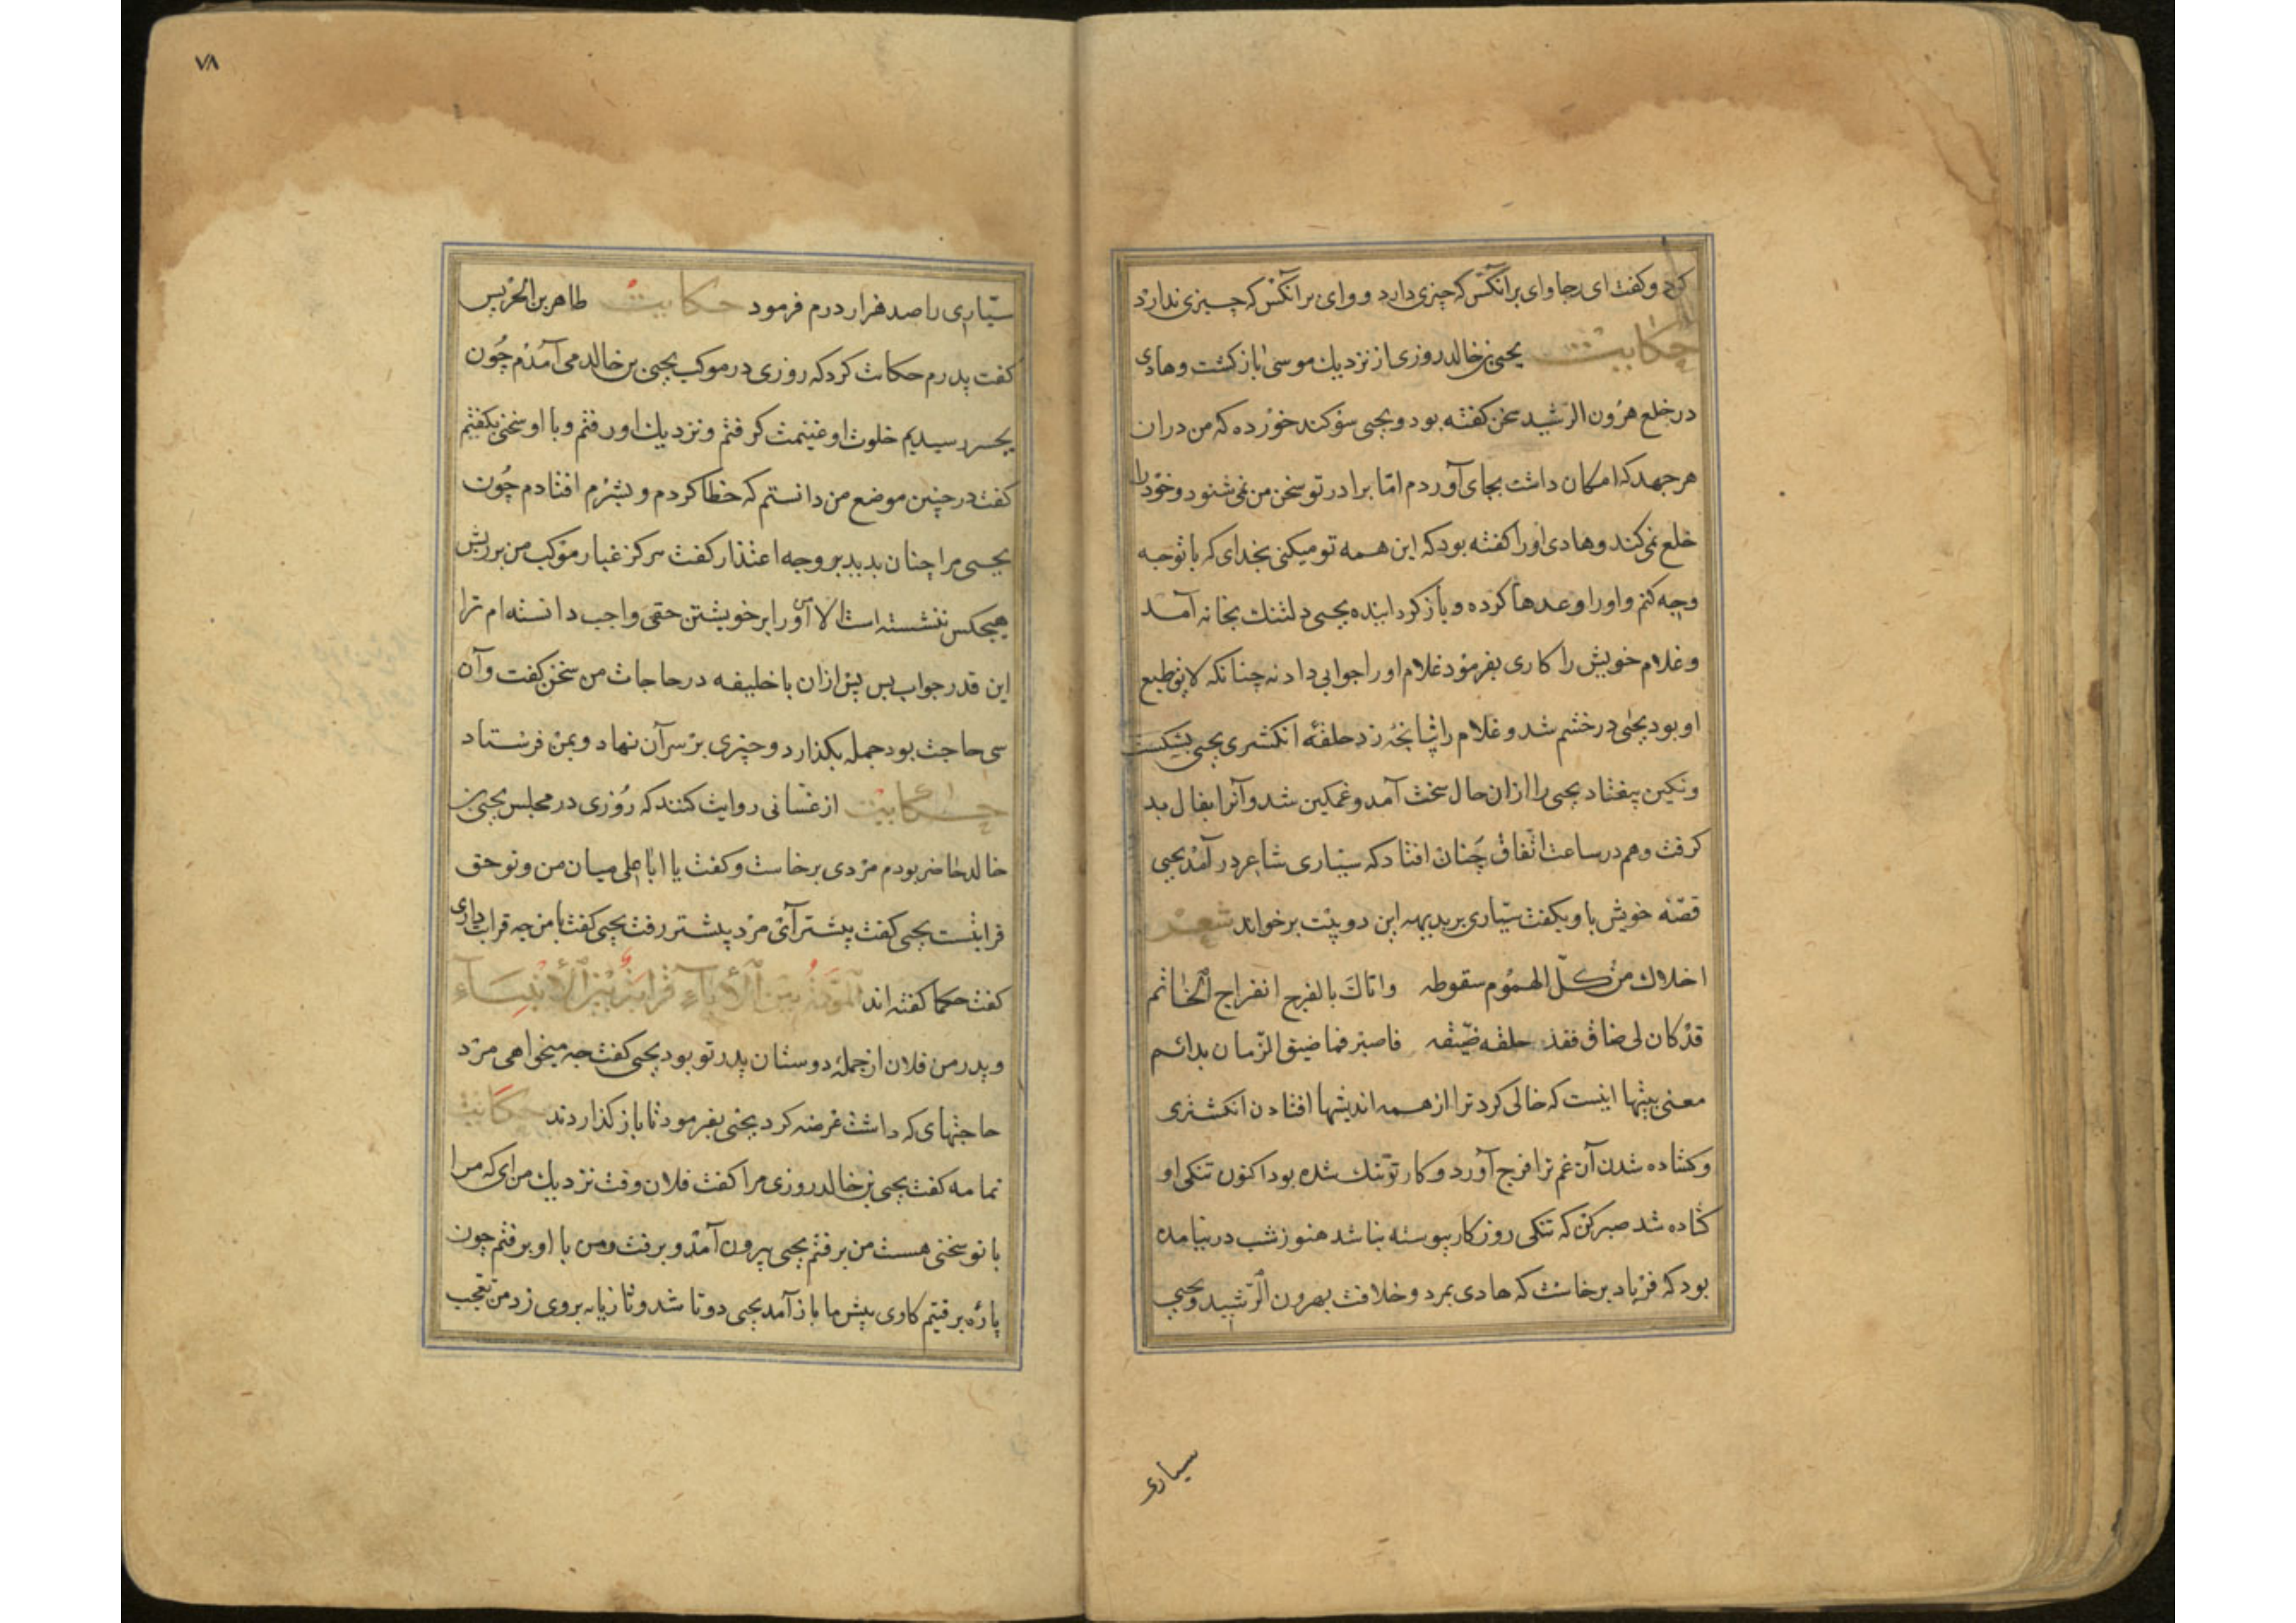 کرد و کفت ای رجا وای برآنکس که چیزی دارد و وای برآنکس که چیزی ندارد
حکایت یحیی بن خالد روزی از نزدیك موسی باز کشت و هادی
در خلع هرون الرشید سخن کفته بود و یحیی سوکند خورده که من دران
هر جهد که امکان داشت بجای آوردم امّا برادر تو سخن من نمی شنود و خود را
خلع نمی کند و هادی اورا کفته بود که این همه تو میکنی بخدای که با تو چه
وچه کنم و اورا وعدها کرده و باز کردانیده یحیی دلتنك بخانه آمد
و غلام خویش را کاری بفرمود غلام اورا جوابی داد نه چنانکه لایق طبع
او بود یحیی درخشم شد و غلام را تپانچه زد حلقه انکشتری یحیی بشکست
و نکین بیفتاد یحیی را ازان حال سخت آمد و غمکین شد و آنرا بفال بد
کرفت و هم در ساعت اتّفاق چنان افتاد که سیّاری شاعر در آمد یحیی
قصّه خویش با او بکفت سیّاری بر بدیهه این دو بیت برخواند شعر
اخلاك من کلّ الهموم سقوطه واتاك بالفرج انفراج الخاتم
قد کان لی ضاق ففذ حلقه ضیّقه فاصبر فما ضیق الزّمان بدائم
معنی بیتها اینست که خالی کرد ترا از همه اندیشها افتادن انکشتری
و کشاده شدن آن غم ترا فرج آورد و کار تو تنك شده بود اکنون تنکی او
کشاده شد صبر کن که تنکی روزکار پیوسته نباشد هنوز شب درنیامده
بود که فریاد برخاست که هادی بمرد و خلافت بهرون الرّشید و یحیی
سیاری
٧٨
سیّاری را صد هزار درم فرمود حکایت طاهر بن الحریس
کفت پدرم حکایت کرد که روزی در موکب یحیی بن خالد می آمدم چون
بجسر رسیدیم خلوت او غنیمت کرفتم و نزدیك او رفتم و با او سخنی بکفتم
کفت در چنین موضع من دانستم که خطا کردم و بشرم افتادم چون
یحیی مرا چنان بدید بر وجه اعتذار کفت هرکز غبار موکب من بر ریش
هیچکس ننشسته است الا من آنرا بر خویشتن حقی واجب دانسته ام ترا
این قدر جواب بس پس ازان با خلیفه در حاجات من سخن کفت و آن
سی حاجت بود جمله بکذارد و چیزی بر سر آن نهاد و بمن فرستاد
حکایت از غسّانی روایت کنند که روزی در مجلس یحیی بن
خالد حاضر بودم مردی برخاست و کفت یا ابا علی میان من و تو حق
قرابتست یحیی کفت پیشتر آی مرد پیشتر رفت یحیی کفت با من چه قرابت داری
کفت حکما کفته اند المودّة بین الآباء قرابة بین الأبناء
و پدر من فلان از جمله دوستان پدر تو بود یحیی کفت چه میخواهی مرد
حاجتهای که داشت عرضه کرد یحیی بفرمود تا باز کذاردند حکایت
ثمامه کفت یحیی بن خالد روزی مرا کفت فلان وقت نزدیك من آی که مرا
با تو سخنی هست من برفتم یحیی بیرون آمد و برفت و من با او برفتم چون
پاره برفتیم کاوی پیش ما باز آمد یحیی دوتا شد و تازیانه بروی زد من تعجب